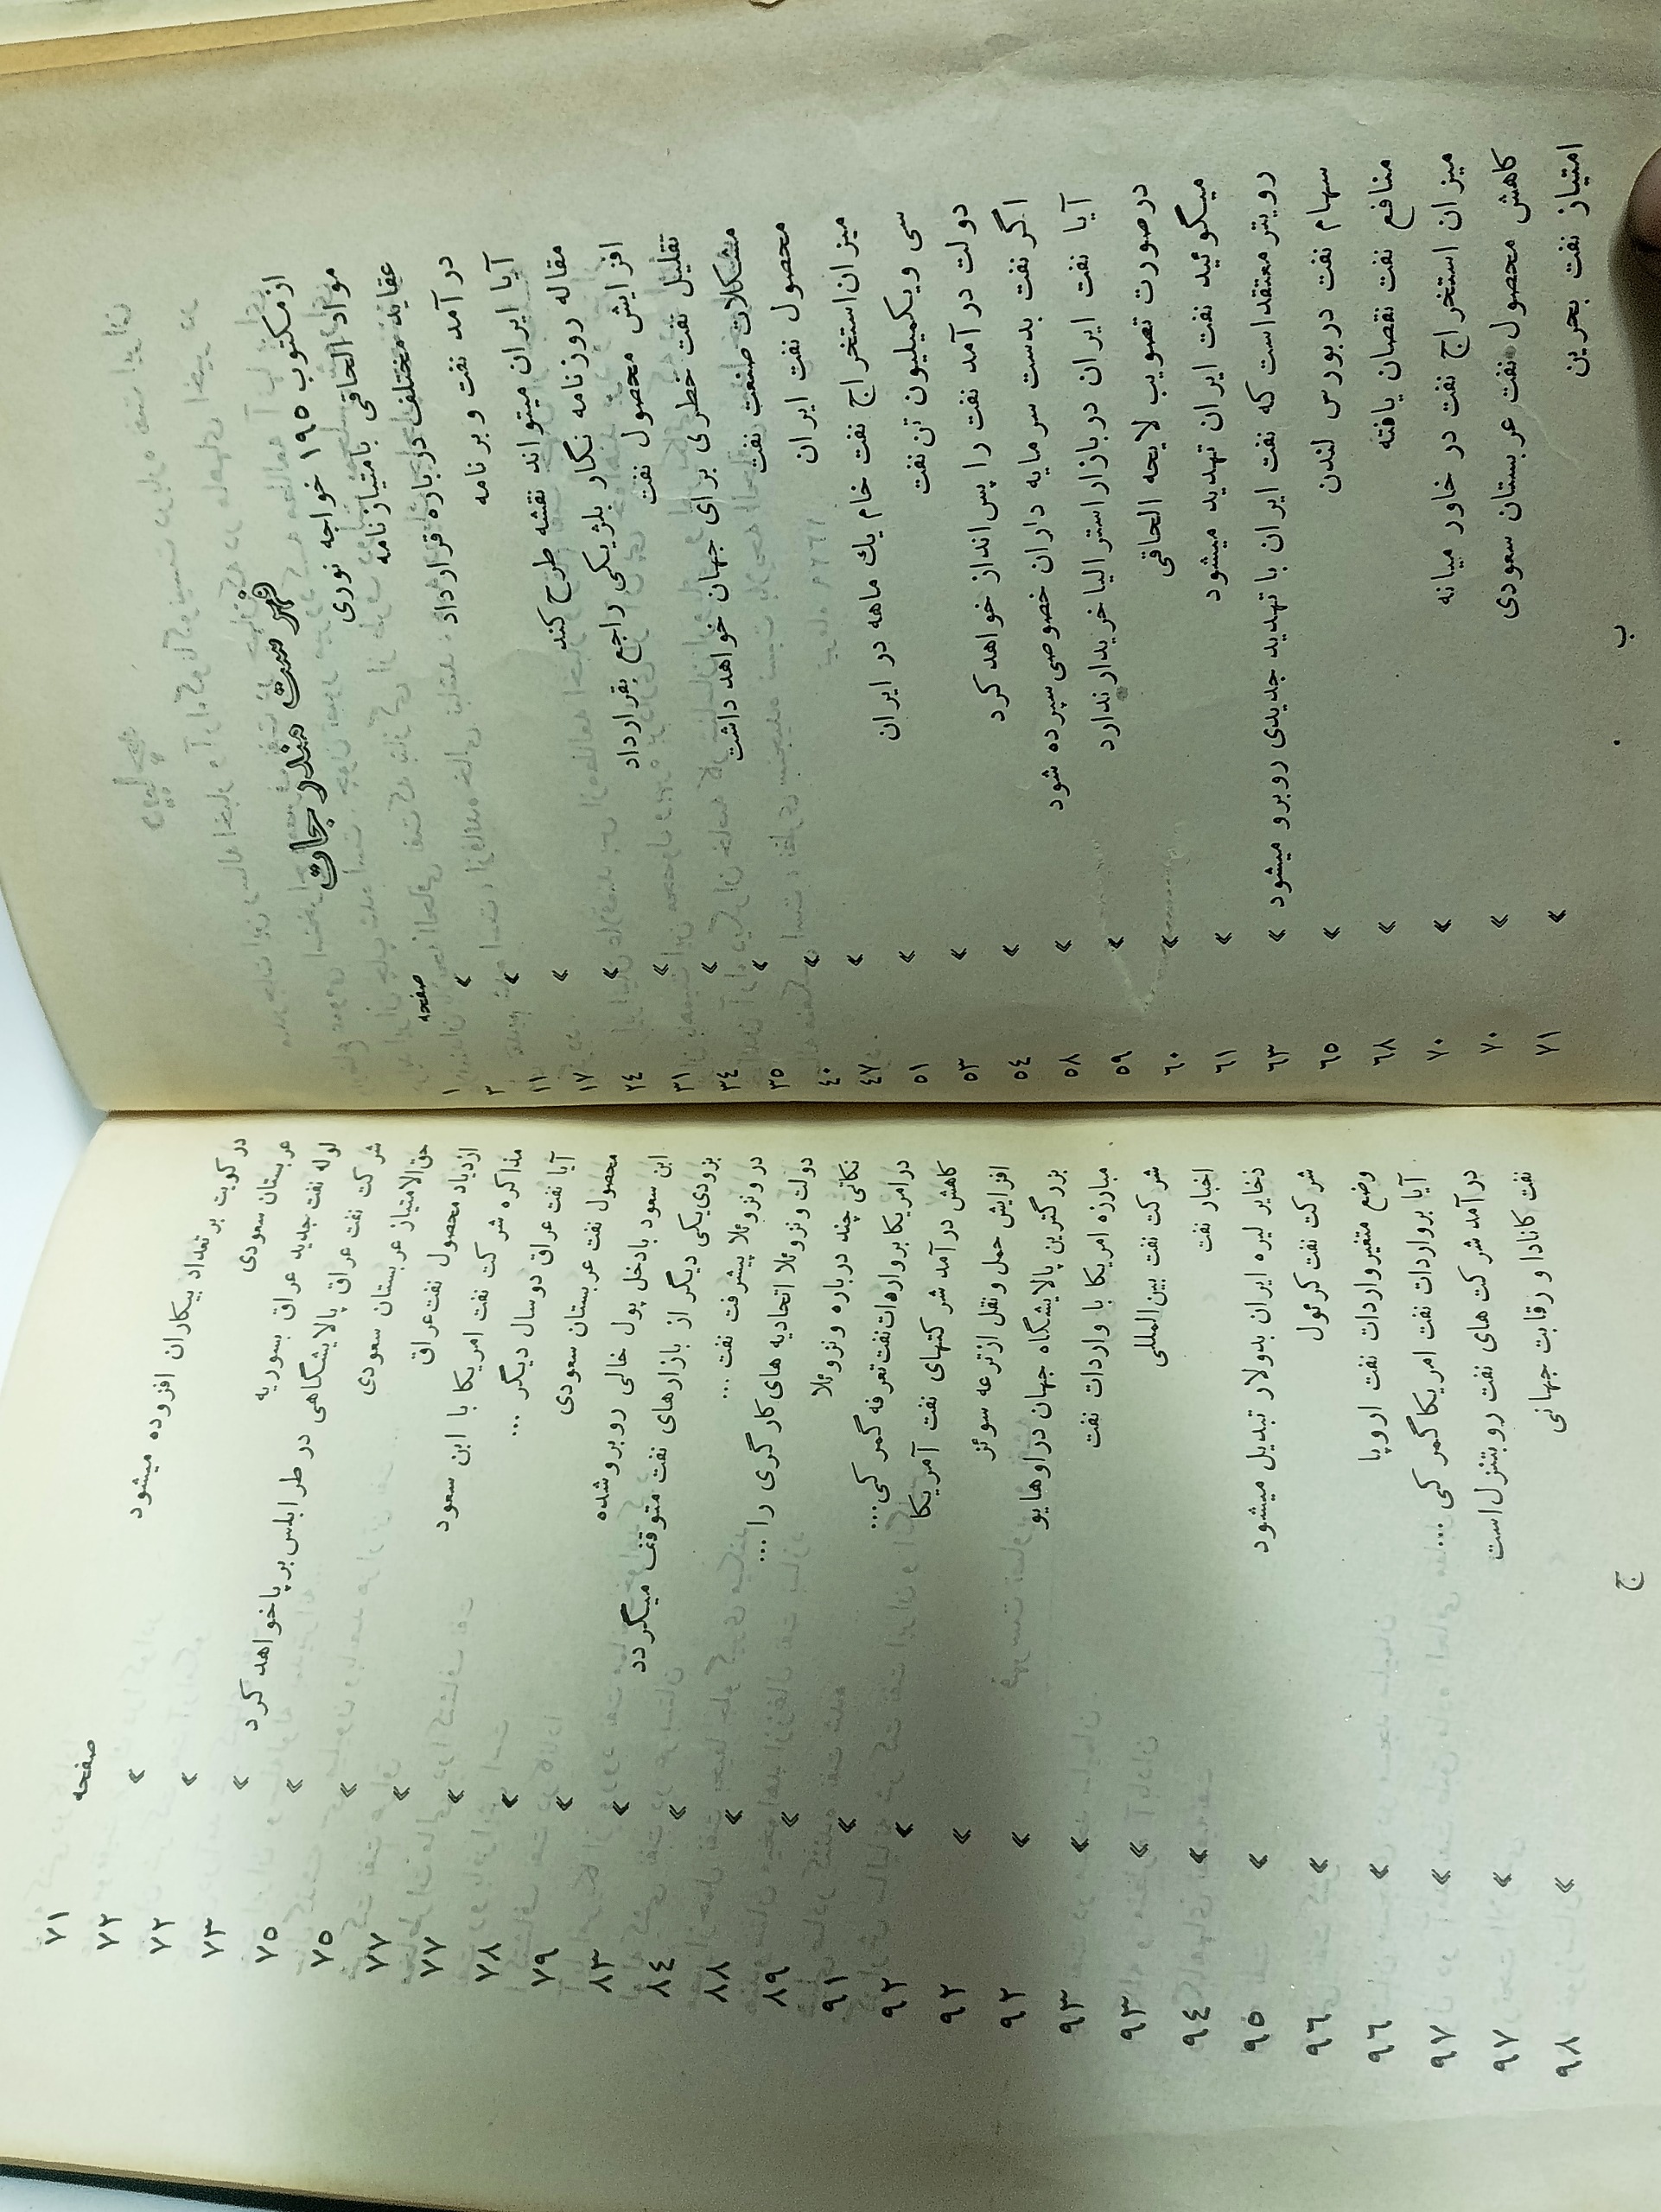 فهرست مندرجات
از مکتوب ۱۹۵ خواجه نوری صفحه ۱
مواد الحاقی بامتیازنامه » ۳
عقاید مختلف درباره قرارداد » ۱۱
در آمد نفت و برنامه » ۱۷
آیا ایران میتواند نقشه طرح کند » ۲۴
مقاله روزنامه نگار بلژیکی راجع بقرارداد » ۳۱
افزایش محصول نفت » ۳۴
تقلیل نفت خطری برای جهان خواهد داشت » ۳۵
مشکلات صنعت نفت » ۴۰
محصول نفت ایران » ۴۷
میزان استخراج نفت خام یك ماهه در ایران » ۵۱
سی و یکمیلیون تن نفت » ۵۳
دولت در آمد نفت را پس انداز خواهد کرد » ۵۴
اگر نفت بدست سرمایه داران خصوصی سپرده شود » ۵۸
آیا نفت ایران در بازار استرالیا خریدار ندارد » ۵۹
در صورت تصویب لایحه الحاقی » ۶۰
میگوئید نفت ایران تهدید میشود » ۶۱
رویتر معتقد است که نفت ایران با تهدید جدیدی روبرو میشود » ۶۳
سهام نفت در بورس لندن » ۶۵
منافع نفت نقصان یافته » ۶۸
میزان استخراج نفت در خاور میانه » ۷۰
کاهش محصول نفت عربستان سعودی » ۷۰
امتیاز نفت بحرین » ۷۱
ب
در کویت بر تعداد بیکاران افزوده میشود صفحه ۷۱
عربستان سعودی » ۷۲
لوله نفت جدید عراق بسوریه » ۷۲
شرکت نفت عراق پالایشگاهی در طرابلس برپا خواهد کرد » ۷۳
حق الامتیاز عربستان سعودی » ۷۵
ازدیاد محصول نفت عراق » ۷۵
مذاکره شرکت نفت امریکا با ابن سعود » ۷۷
آیا نفت عراق دو سال دیگر ... » ۷۷
محصول نفت عربستان سعودی » ۷۸
ابن سعود بادخل پول خالی روبرو شده » ۷۹
بزودی یکی دیگر از بازارهای نفت متوقف میگردد » ۸۳
در ونزوئلا پیشرفت نفت ... » ۸۴
دولت ونزوئلا اتحادیه های کارگری را ... » ۸۸
نکاتی چند درباره ونزوئلا » ۸۹
در امریکا برواردات نفت تعرفه گمرکی ... » ۹۱
کاهش در آمد شرکتهای نفت آمریکا » ۹۲
افزایش حمل و نقل از ترعه سوئز » ۹۲
بزرگترین پالایشگاه جهان در اوهایو » ۹۲
مبارزه امریکا با واردات نفت » ۹۳
شرکت نفت بین المللی » ۹۳
اخبار نفت » ۹۴
ذخایر لیره ایران بدولار تبدیل میشود » ۹۵
شرکت نفت کرئول » ۹۶
وضع متغیر واردات نفت اروپا » ۹۶
آیا برواردات نفت امریکا گمرکی ... » ۹۷
در آمد شرکت های نفت رو بتنزل است » ۹۷
نفت کانادا و رقابت جهانی » ۹۸
ج